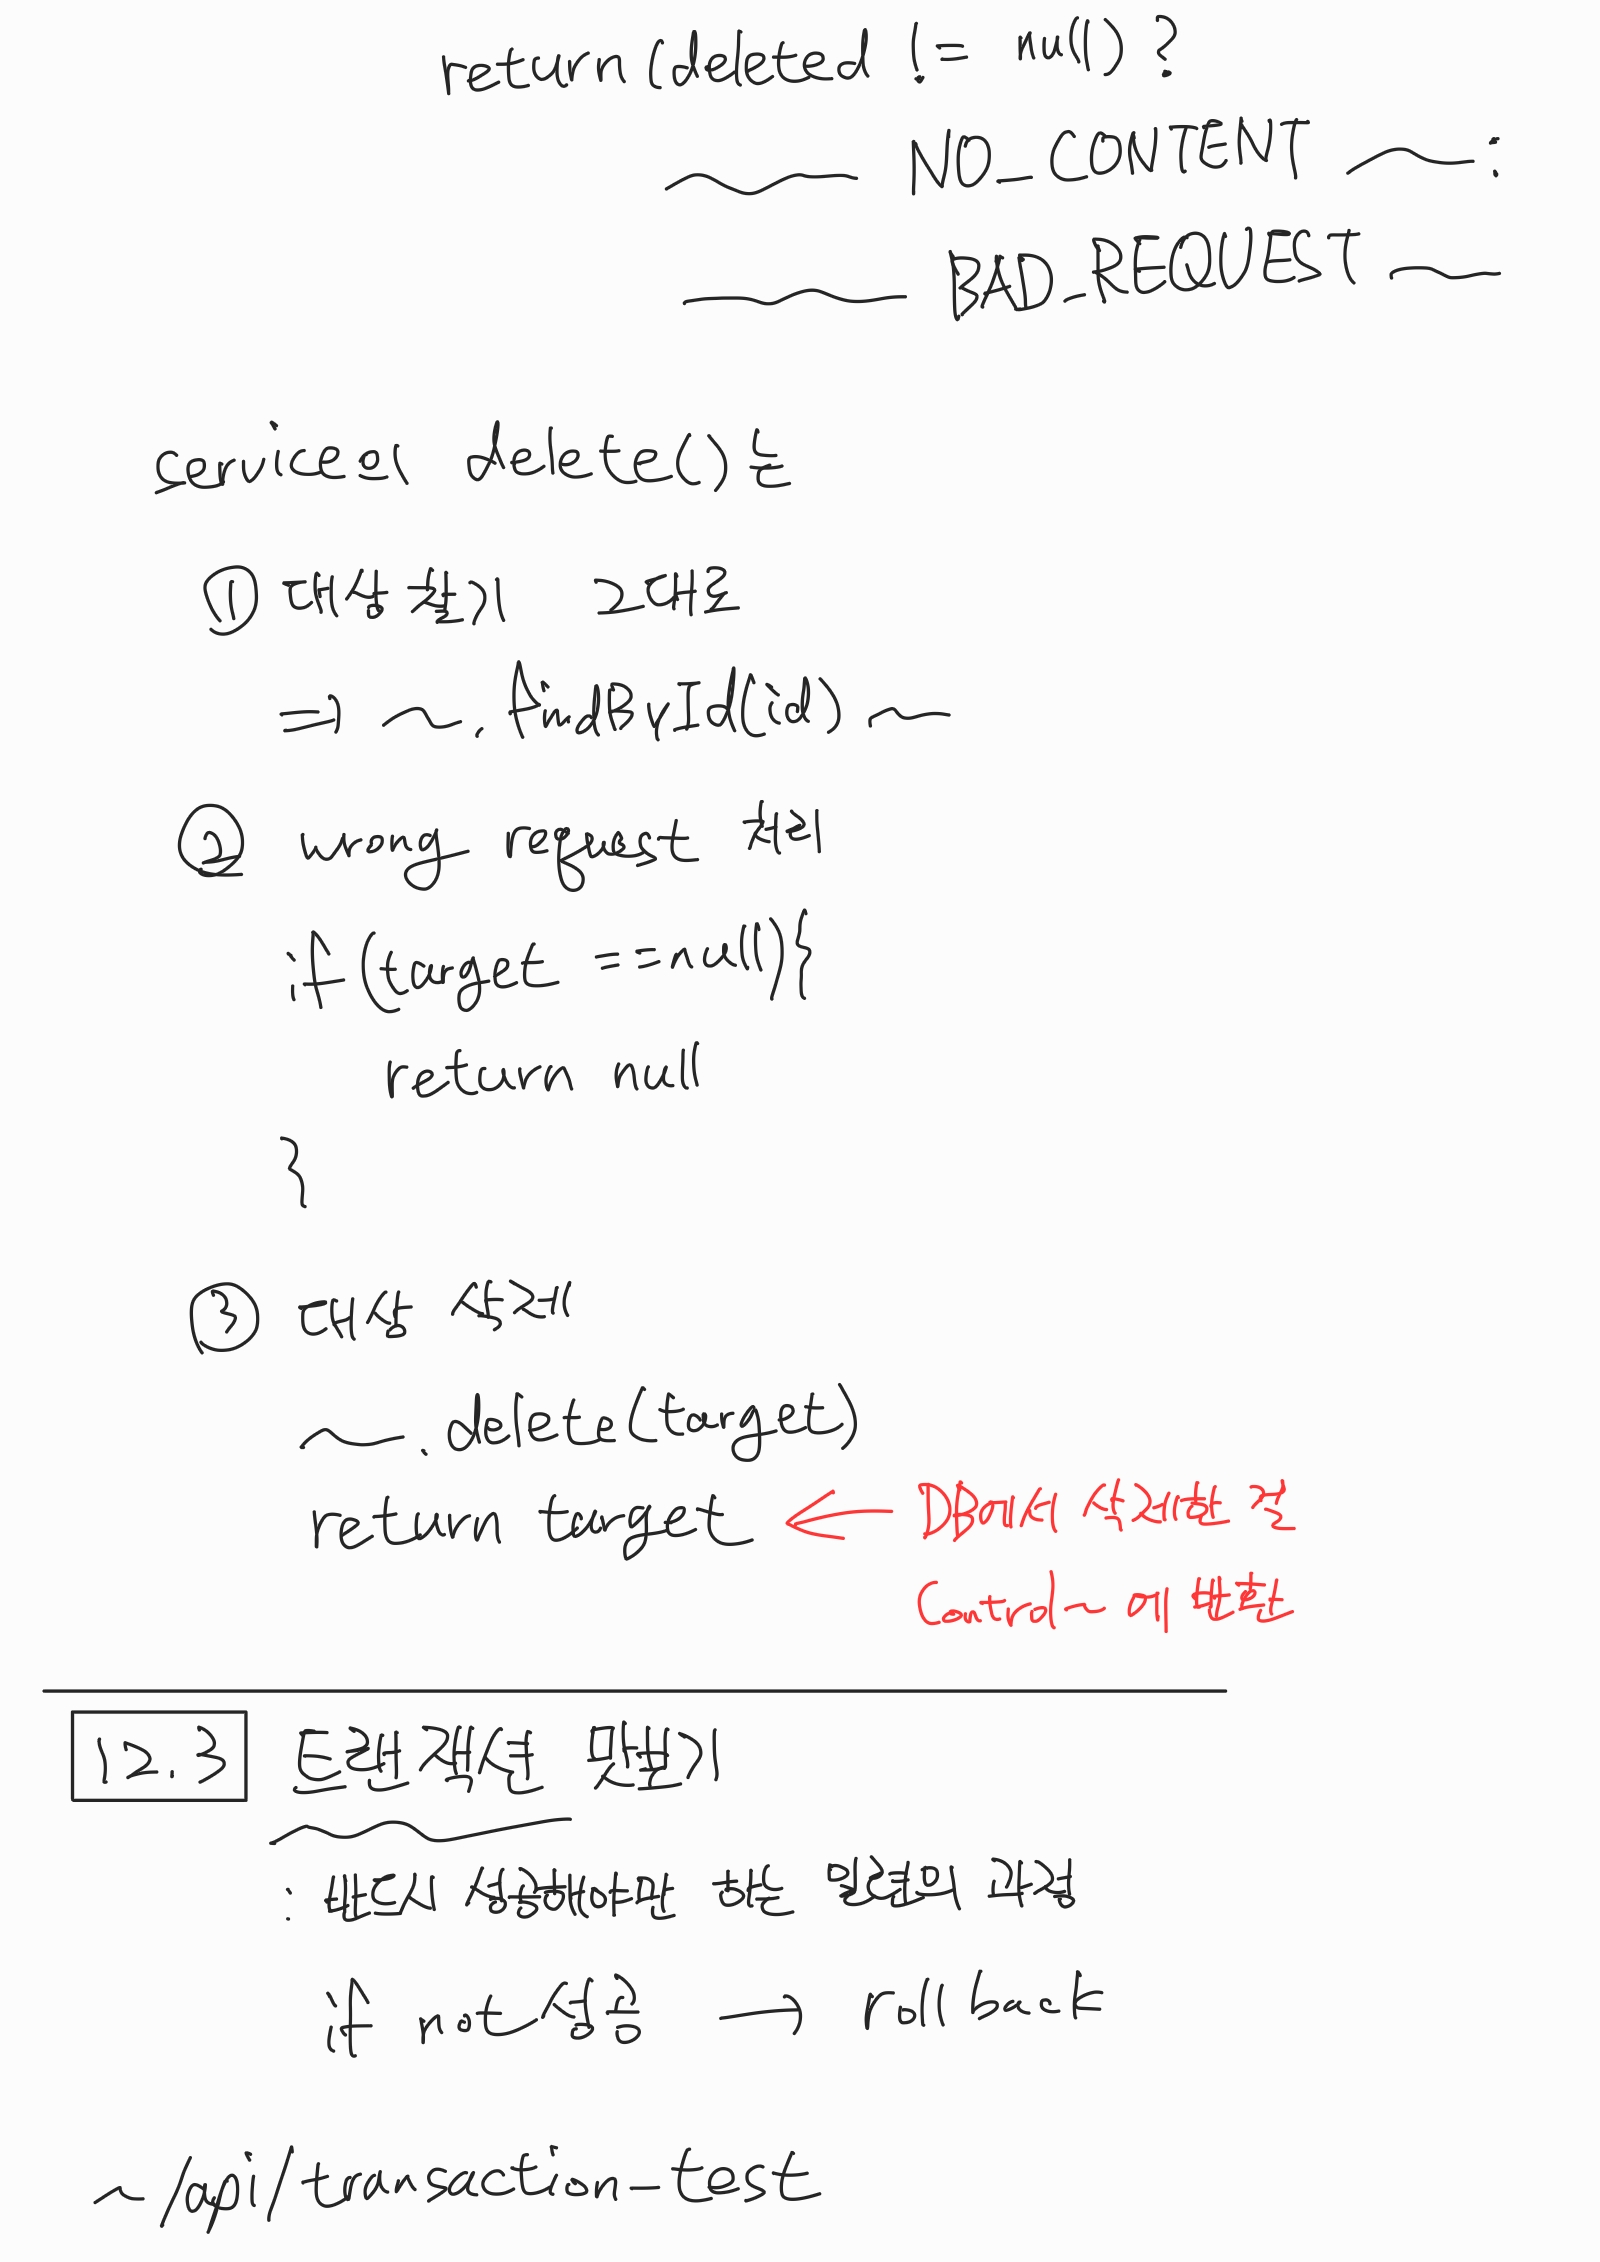 return (deleted != null) ?
~ NO_CONTENT ~ :
~ BAD_REQUEST ~
service의 delete()는
① 대상 찾기 그대로
=> ~. findById(id) ~
② wrong request 처리
if (target ==null){
return null
}
③ 대상 삭제
~. delete(target)
return target ← DB에서 삭제한 걸
Control~ 에 반환
12.3 트랜잭션 맛보기
: 반드시 성공해야만 하는 일련의 과정
if not 성공 → roll back
~/api/transaction-test